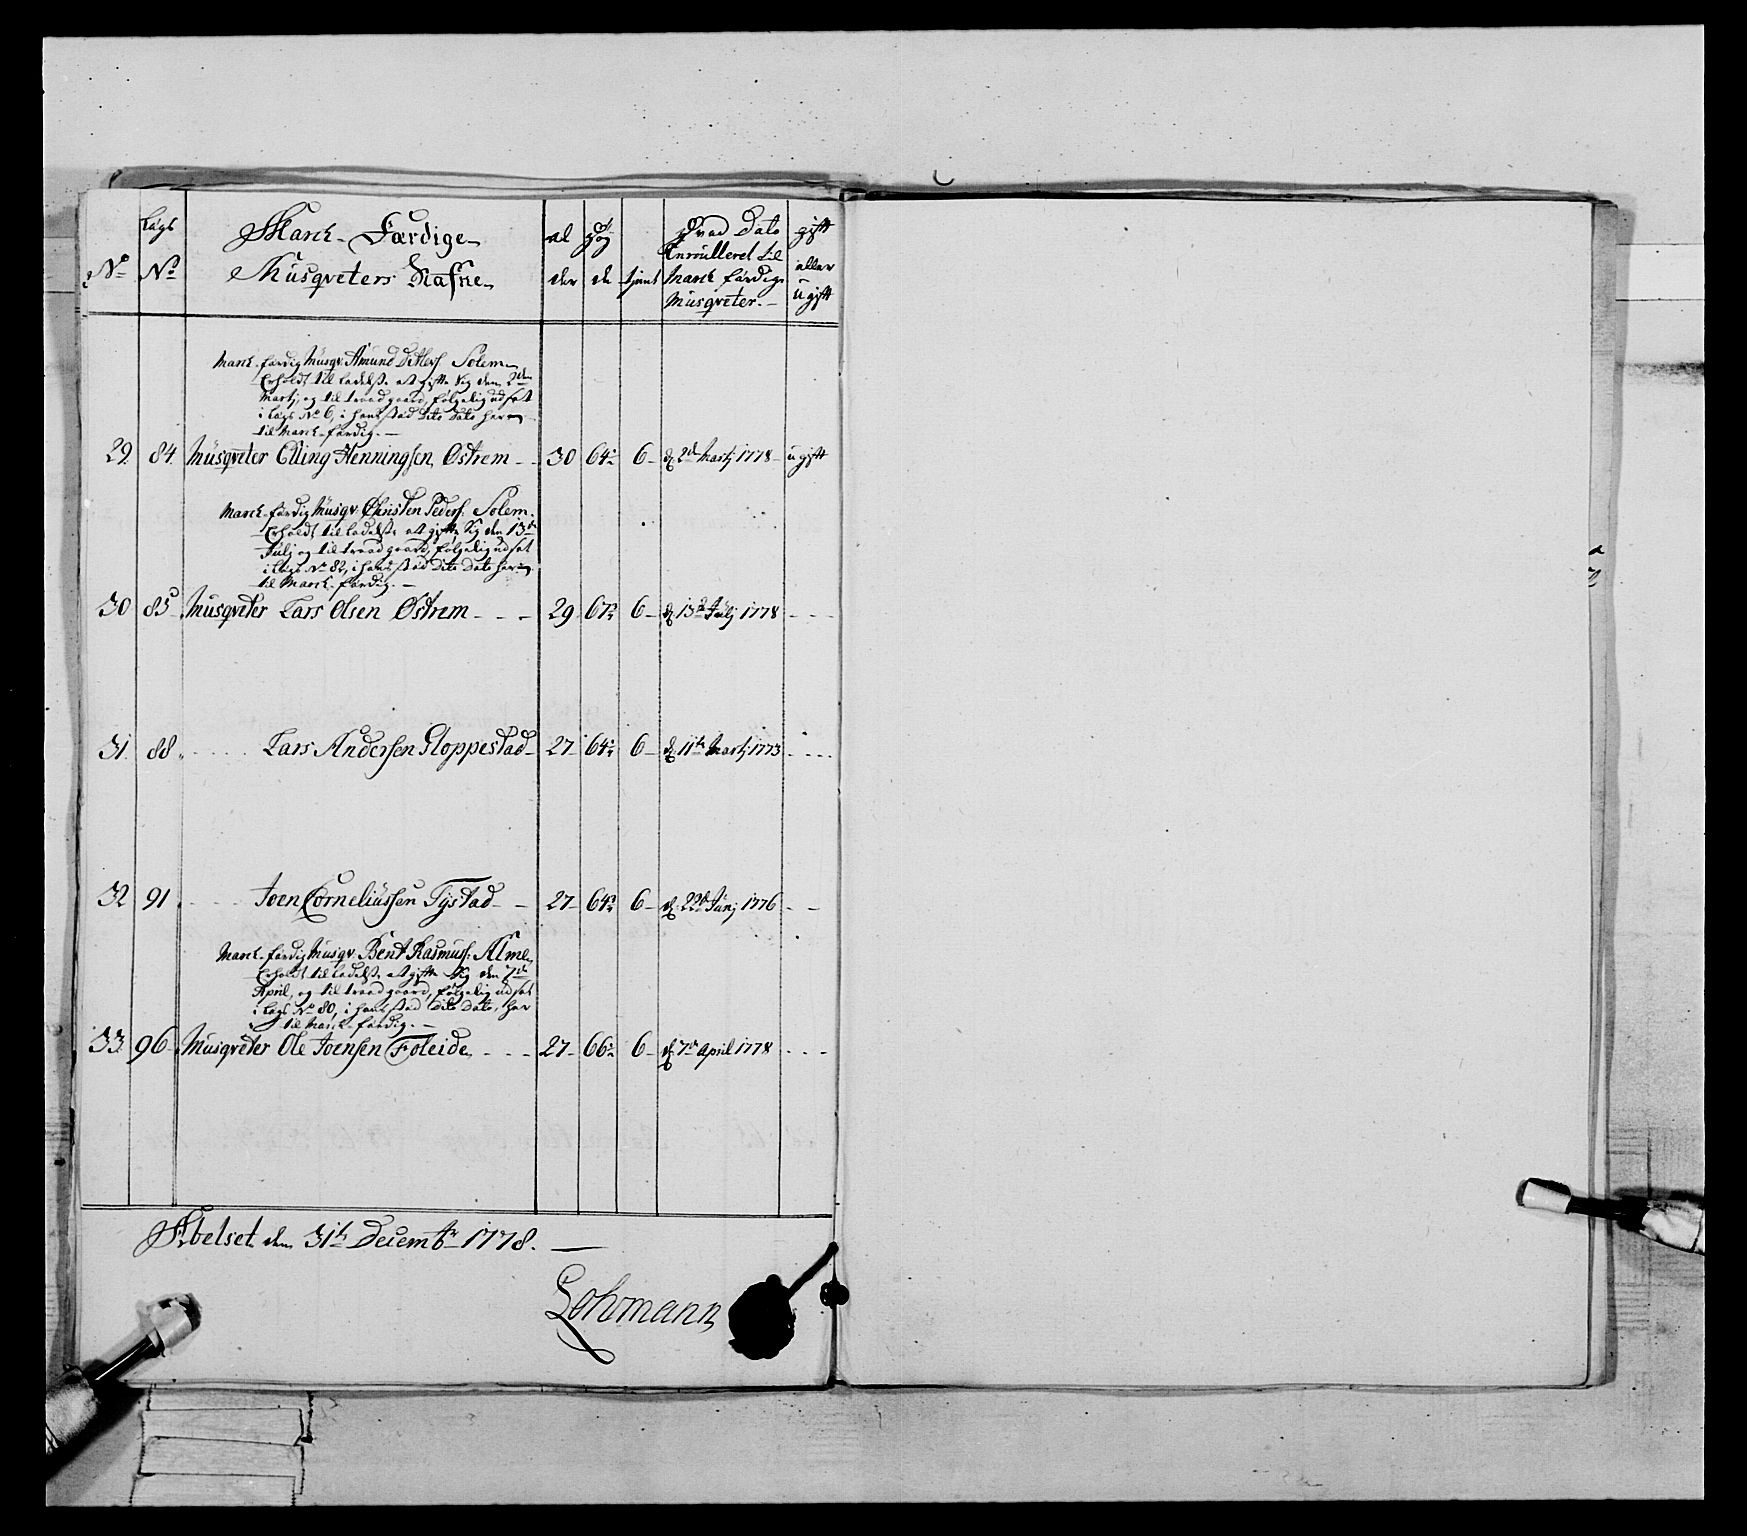 No Lægs No March-Færdige Musqveters Nafne al der Høy de tjent Hvad Dato Enroulleret til March færdige Musqveter.- gift eller ugift
March-færdig Musqv: Amund Detlefs: Solem
Erholdt til ladelse at gifte sig den 2den
Martj, og til traad gaard, følgelig udsat
i Lægs No 6, i hans stæd dito dato herom
til March-færdig.-
29. 84. Musqveter Elling Henningsen Østrem - - 30 64 6 - d. 2d Martj 1778 - ugift
March-færdig Musqv: Christen Peders: Solem
Erholdt til ladelse at gifte sig den 13de
Julj og til traad gaard, følgelig udsat
i Lægs No 82, i hans stæd dito dato herom
til March-færdig.-
30 85 Musqveter Lars Olsen Østrem - - - 29 67 6 - d. 13de Julj 1778 - - -
31. 88. - - - - Lars Andersen Sloppestad - 27 - 64 6 - d. 11te Martj 1773 - - - -
32 91. - - - - Joen Corneliussen Tystad - - 27 - 64 6 - d. 22de Junj 1776 - -
March-færdig Musqv: Bent Rasmus: Alme
Erholdt til ladelse at gifte sig den 7de
April, og til traad gaard, følgelig udsat
i Lægs No 80, i hans stæd dito dato, her
til March-færdig.-
33. 96 Musqveter Ole Joensen Foleide - - - 27 - 66 6 - d. 7de April 1778 - - -
Abelset den 31te Decembr 1778. -
Lohmann